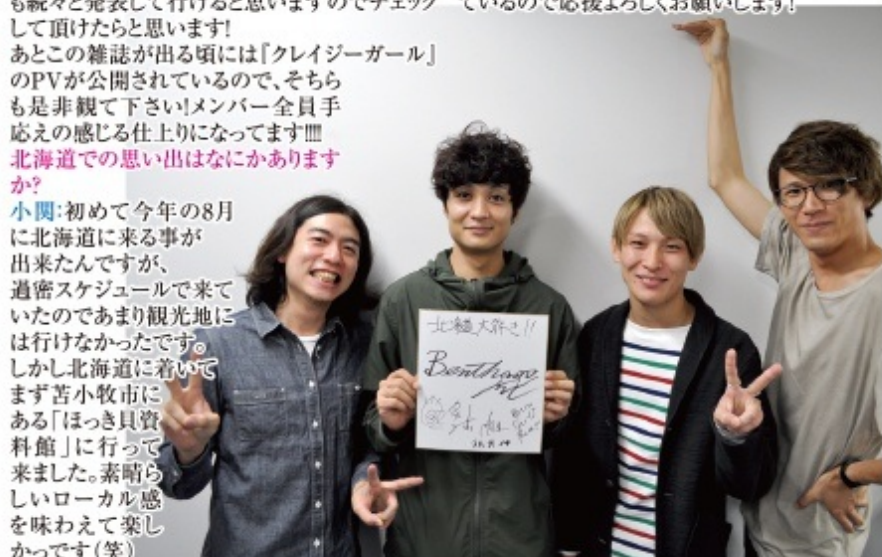 も続々と発表して行けると思いますのでチェック
して頂けたらと思います!
あとこの雑誌が出る頃には『クレイジーガール』
のPVが公開されているので、そちら
も是非観て下さい!メンバー全員手
応えの感じる仕上りになってます!!!!
北海道での思い出はなにかあります
か?
小関:初めて今年の8月
に北海道に来る事が
出来たんですが、
過密スケジュールで来て
いたのであまり観光地に
は行けなかったです。
しかし北海道に着いて
まず苫小牧市に
ある「ほっき貝資
料館」に行って
来ました。素晴ら
しいローカル感
を味わえて楽し
かっです(笑)
ているので応援よろしくお願いします!
北海道大好き!!
Bentham